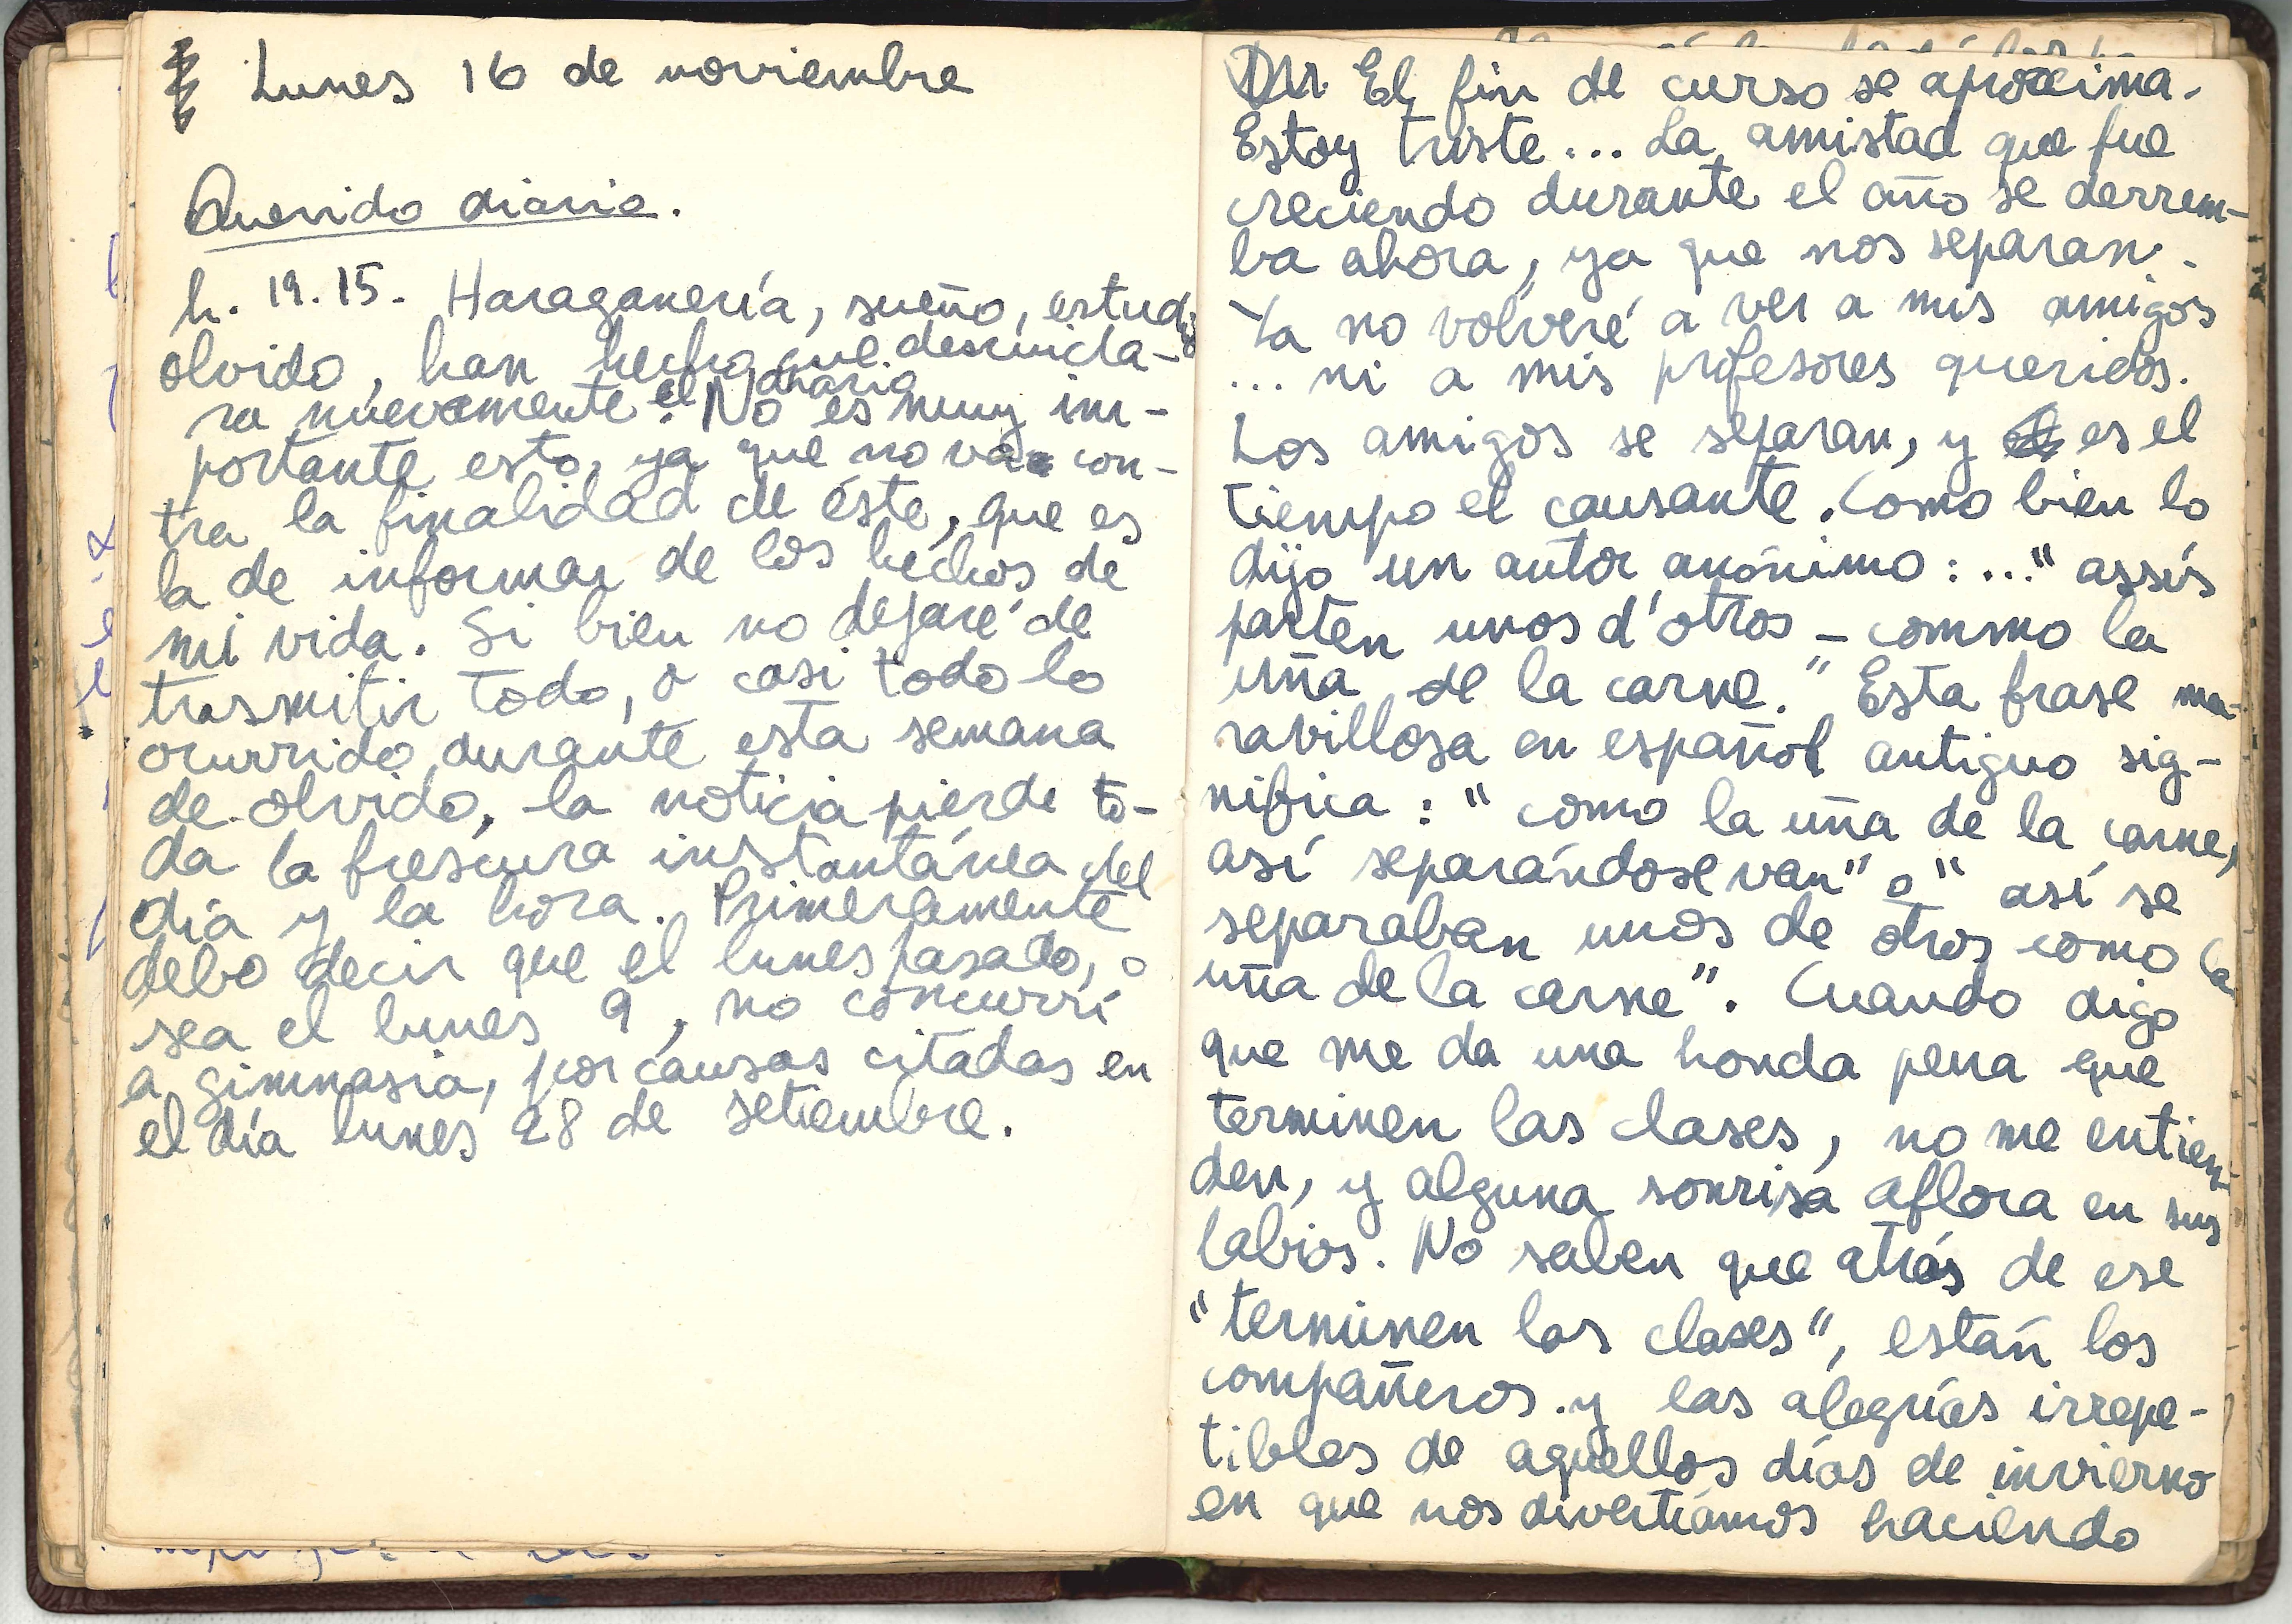 Lunes 16 de noviembre
Querido diario.
h. 19.15. Haraganería, sueño, estudio
olvido, han hecho que descuida-
ra nuevamente el diario. No es muy im-
portante esto, ya que no va con-
tra la finalidad de éste, que es
la de informar de los hechos de
mi vida. Si bien no dejaré de
trasmitir todo, o casi todo lo
ocurrido durante esta semana
de olvido, la noticia pierde to-
da la frescura instantánea del
día y la hora. Primeramente
debo decir que el lunes pasado, o
sea el lunes 9, no concurrí
a gimnasia, por causas citadas en
el día lunes 28 de setiembre.
El fin de curso se aproxima.
Estoy triste... La amistad que fue
creciendo durante el año se derrum-
ba ahora, ya que nos separan.
Ya no volveré a ver a mis amigos
... ni a mis profesores queridos.
Los amigos se separan, y es el
tiempo el causante. Como bien lo
dijo un autor anónimo: ..." assís
parten unos d'otros - commo la
uña de la carne." Esta frase ma-
ravillosa en español antiguo sig-
nifica: "como la uña de la carne,
así separándose van" o "así se
separaban unos de otros como la
uña de la carne". Cuando digo
que me da una honda pena que
terminen las clases, no me entien-
den, y alguna sonrisa aflora en sus
labios. No saben que atrás de ese
"terminen las clases", están los
compañeros y las alegrías irrepe-
tibles de aquellos días de invierno
en que nos divertíamos haciendo